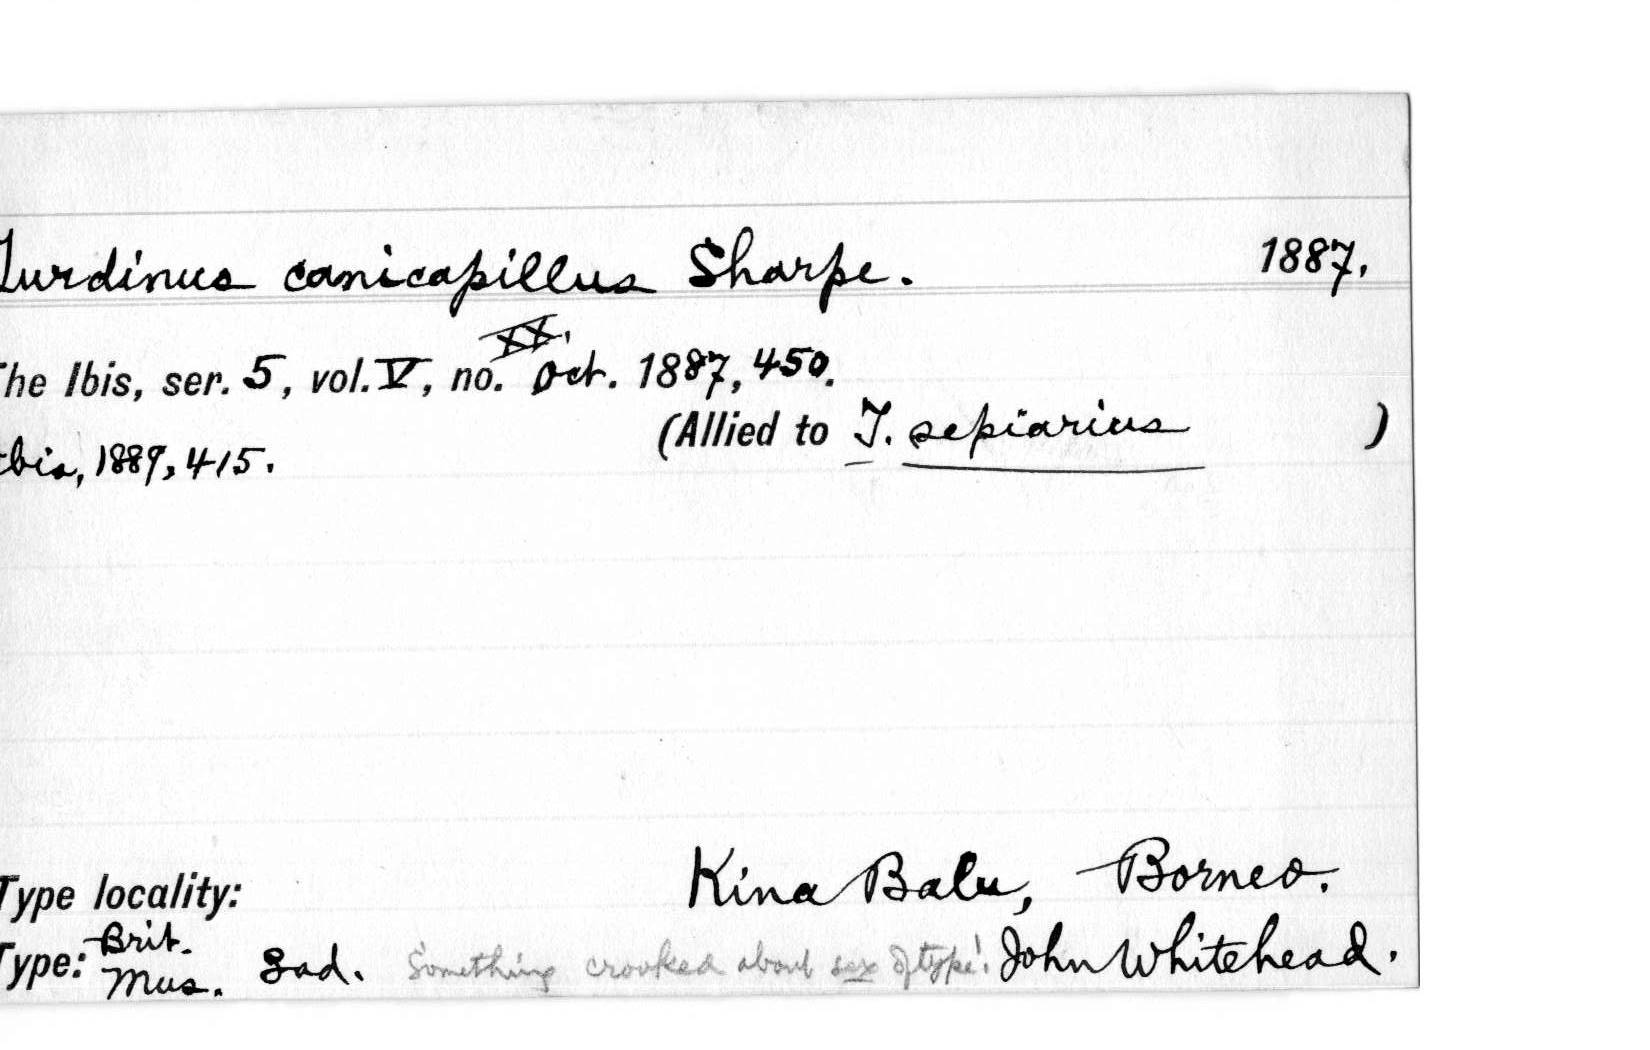 Turdinus canicapillus Sharpe. 1887.
XX.
The Ibis, ser. 5, vol. V, no. Oct. 1887, 450.
(Allied to T. sepiarius )
Ibis, 1889, 415.
Type locality: Kina Balu, Borneo.
Type: Brit. Mus. ad. Something crooked about sex of type! John Whitehead.